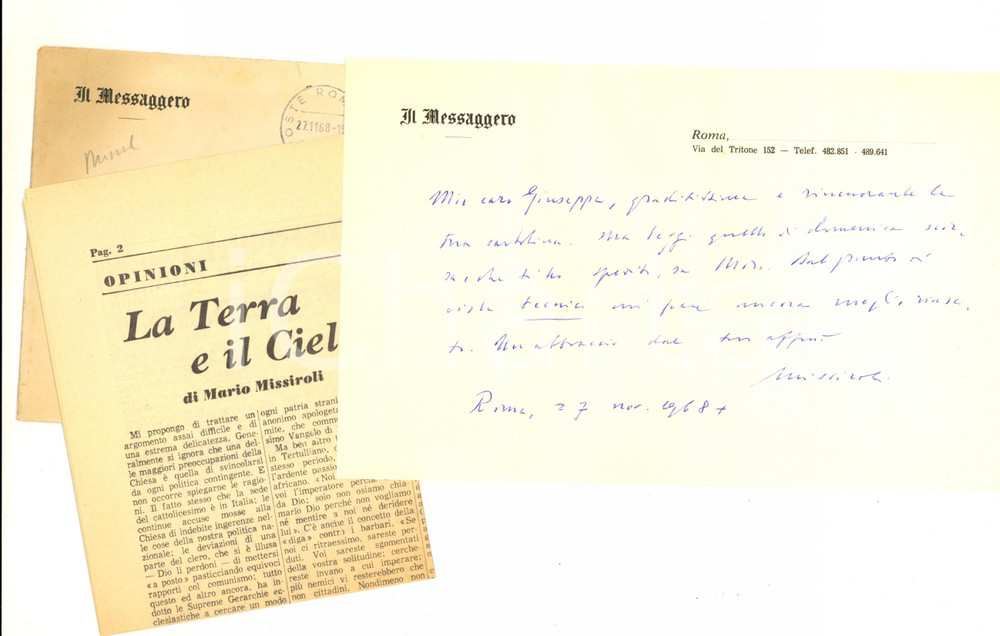 Il Messaggero
POSTE ROM
27.11 68-19
Il Messaggero
Roma,
Via del Tritone 152 — Telef. 482.851 - 489.641
Mio caro Giuseppe, graditissima e rincuorante la
tua cartolina. Ma leggi quello di domenica
che ti ho spedito, su Dal punto di
vista tecnico mi pare ancora meglio riusci-
to. Un abbraccio dal tuo aff.mo
Missiroli
Roma, 27 nov. 1968
Pag. 2
OPINIONI
La Terra
e il Ciel
di Mario Missiroli
Mi propongo di trattare un
argomento assai difficile e di
una estrema delicatezza. Gene-
ralmente si ignora che una del-
le maggiori preoccupazioni della
Chiesa è quella di svincolarsi
da ogni politica contingente. E
non occorre spiegarne le ragio-
ni. Il fatto stesso che la sede
del cattolicesimo è in Italia; le
continue accuse mosse alla
Chiesa di indebite ingerenze nel-
le cose della nostra politica na-
zionale; le deviazioni di una
parte del clero, che si è illusa
— Dio li perdoni — di mettersi
«a posto» pasticciando equivoci
rapporti col comunismo; tutto
questo ed altro ancora, ha in-
dotto le Supreme Gerarchie ec-
clesiastiche a cercare un modo
ogni patria strani
anonimo apologeta
mite, che comm
simo Vangelo di
Ma ben altro t
in Tertulliano, c
stesso periodo,
l'ardente passio
africano. «Noi
vol l'imperatore perchè
da Dio; solo non osiamo chia-
marlo Dio perchè non vogliamo
né mentire a noi né deridere
lui». C'è anche il concetto della
«diga» contro i barbari. «Se
noi ci ritraessimo, sareste per-
duti. Voi sareste sgomentati
della vostra solitudine; cerche-
reste invano a cui imperare;
più nemici vi resterebbero che
non cittadini. Nondimeno non